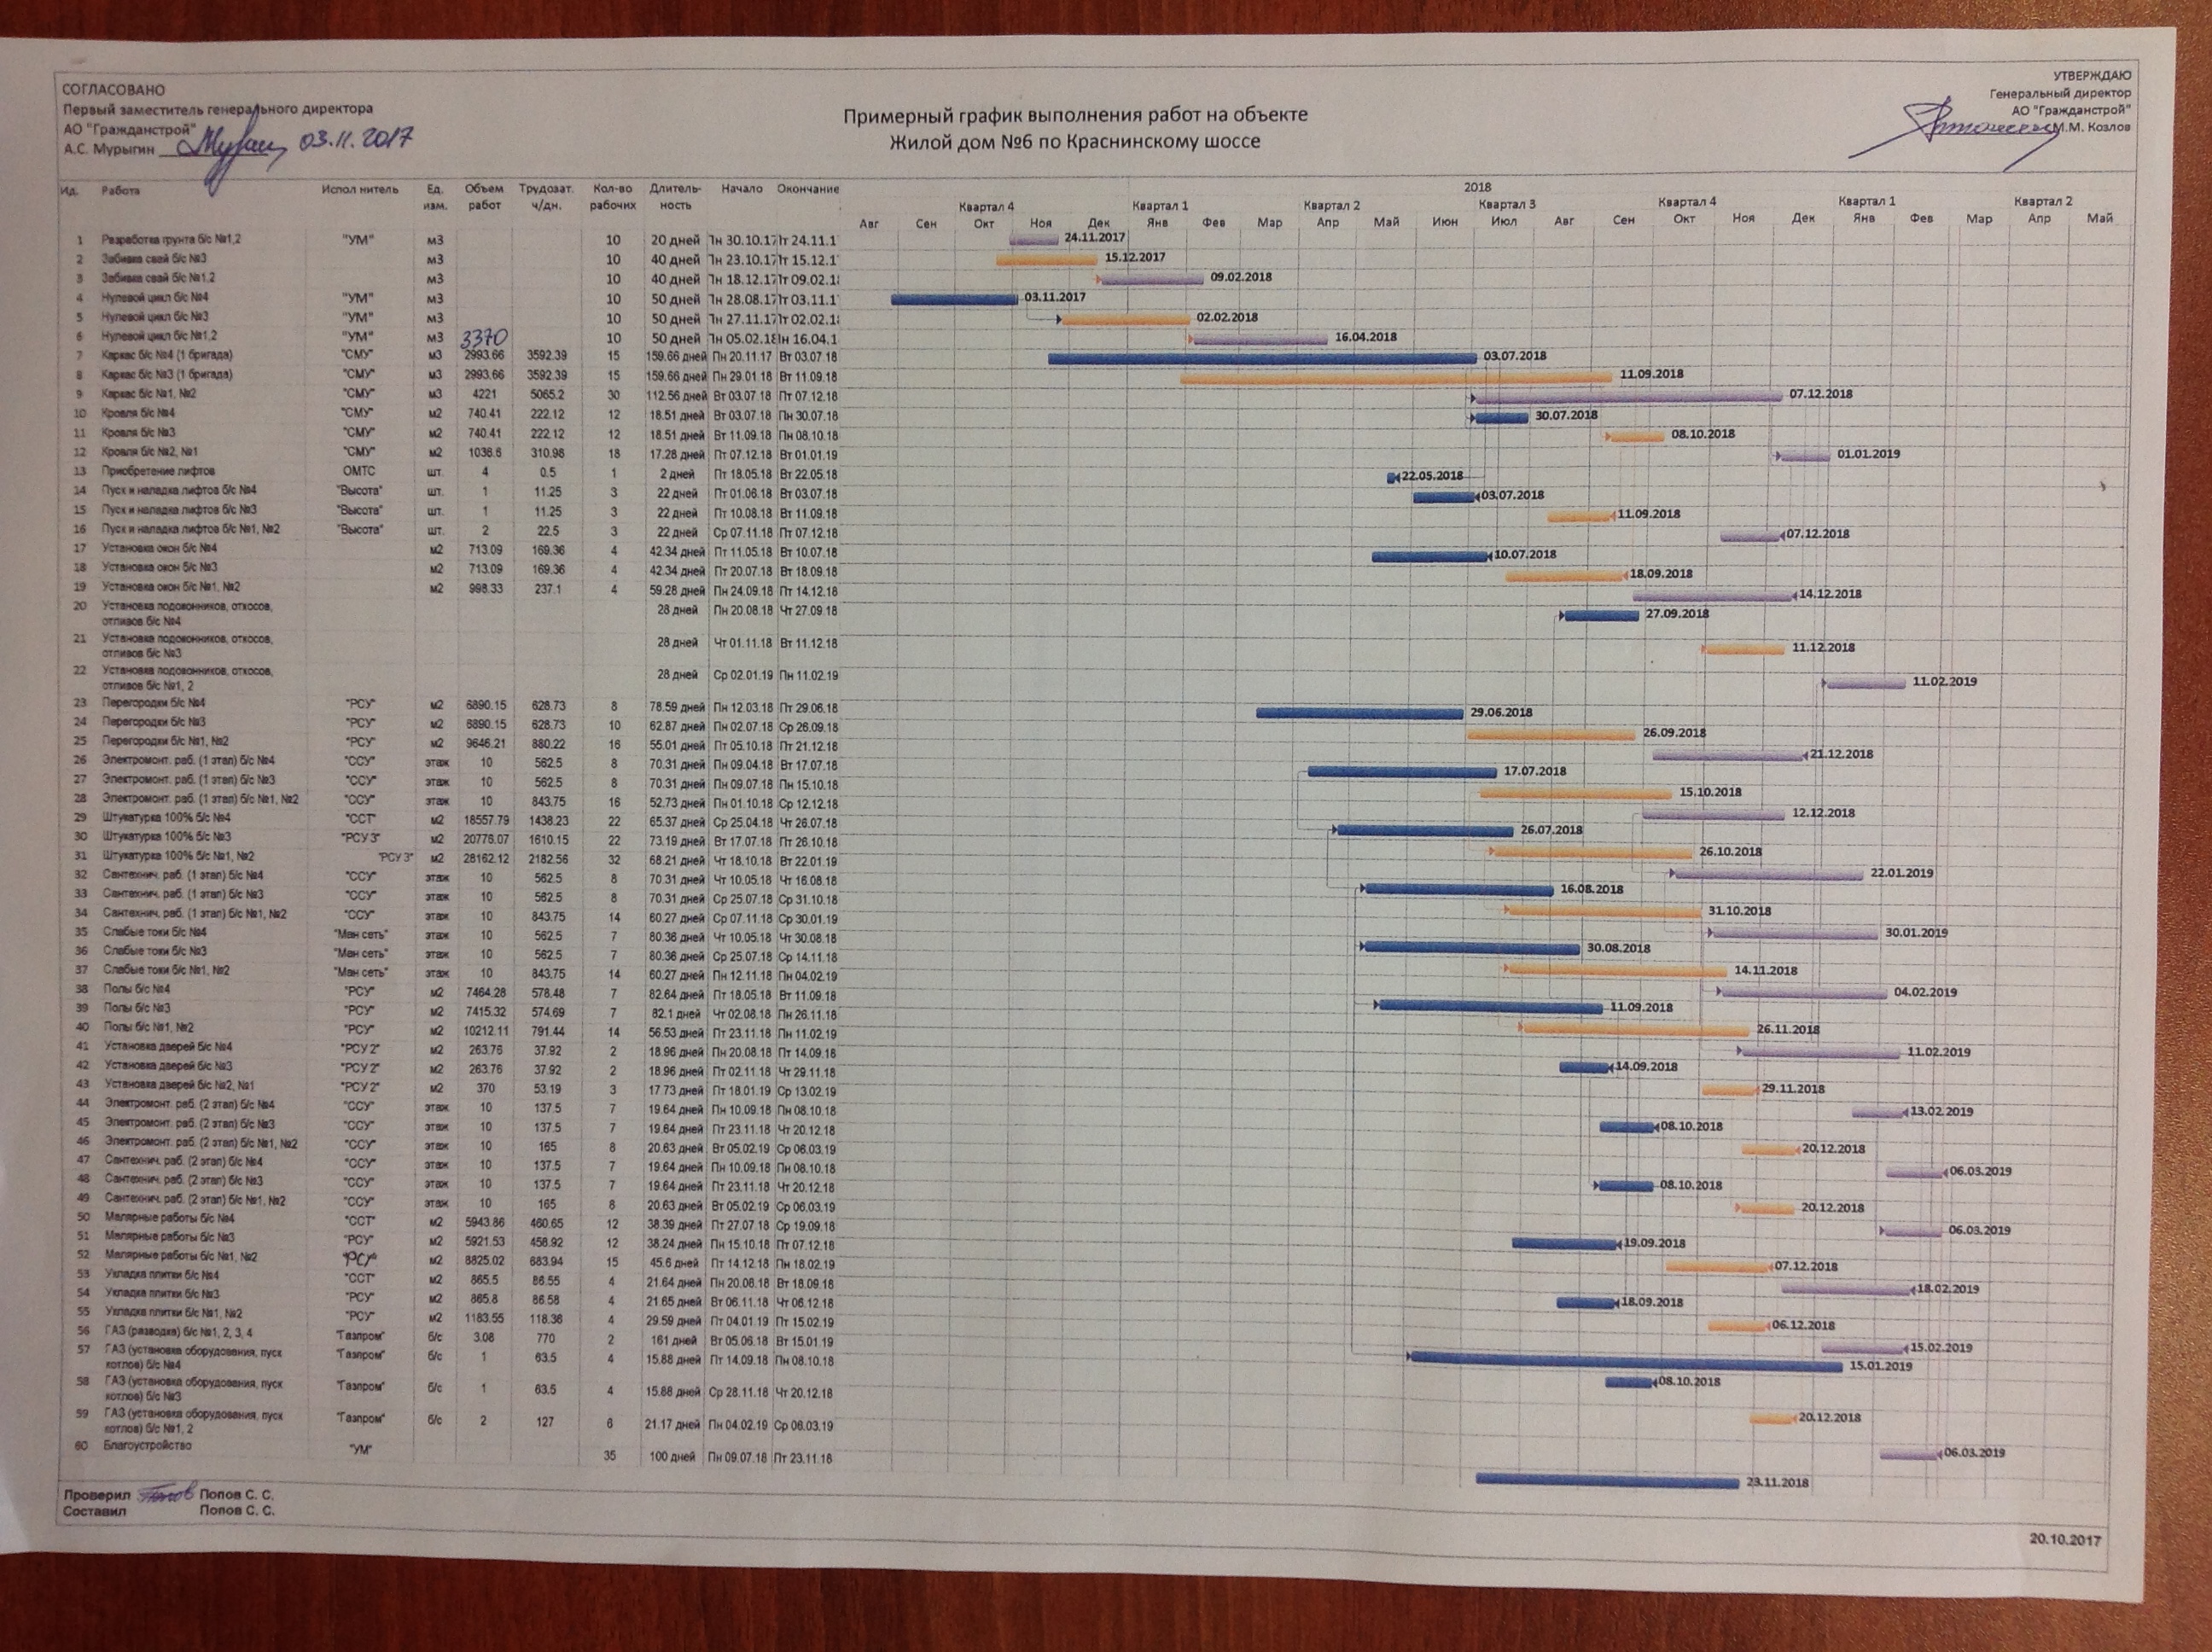 СОГЛАСОВАНО
Первый заместитель генерального директора
АО "Гражданстрой"
А.С. Мурыгин 03.11.2017
УТВЕРЖДАЮ
Генеральный директор
АО "Гражданстрой"
М.М. Козлов
Примерный график выполнения работ на объекте
Жилой дом №6 по Краснинскому шоссе
Ид. Работа Испол нитель Ед. изм. Объем работ Трудозат. ч/дн. Кол-во рабочих Длитель-ность Начало Окончание
2018
Квартал 4 Квартал 1 Квартал 2 Квартал 3 Квартал 4 Квартал 1 Квартал 2
Авг Сен Окт Ноя Дек Янв Фев Мар Апр Май Июн Июл Авг Сен Окт Ноя Дек Янв Фев Мар Апр Май
1 Разработка грунта б/с №1,2 "УМ" м3 10 20 дней Пн 30.10.17 Пт 24.11.1 24.11.2017
2 Забивка свай б/с №3 м3 10 40 дней Пн 23.10.17 Пт 15.12.1 15.12.2017
3 Забивка свай б/с №1,2 м3 10 40 дней Пн 18.12.17 Пт 09.02.18 09.02.2018
4 Нулевой цикл б/с №4 "УМ" м3 10 50 дней Пн 28.08.17 Пт 03.11.1 03.11.2017
5 Нулевой цикл б/с №3 "УМ" м3 10 50 дней Пн 27.11.17 Пт 02.02.18 02.02.2018
6 Нулевой цикл б/с №1,2 "УМ" м3 3370 10 50 дней Пн 05.02.18 Пн 16.04.1 16.04.2018
7 Каркас б/с №4 (1 бригада) "СМУ" м3 2993.66 3592.39 15 159.66 дней Пн 20.11.17 Вт 03.07.18 03.07.2018
8 Каркас б/с №3 (1 бригада) "СМУ" м3 2993.66 3592.39 15 159.66 дней Пн 29.01.18 Вт 11.09.18 11.09.2018
9 Каркас б/с №1, №2 "СМУ" м3 4221 5065.2 30 112.56 дней Вт 03.07.18 Пт 07.12.18 07.12.2018
10 Кровля б/с №4 "СМУ" м2 740.41 222.12 12 18.51 дней Вт 03.07.18 Пн 30.07.18 30.07.2018
11 Кровля б/с №3 "СМУ" м2 740.41 222.12 12 18.51 дней Вт 11.09.18 Пн 08.10.18 08.10.2018
12 Кровля б/с №2, №1 "СМУ" м2 1036.6 310.98 18 17.28 дней Пт 07.12.18 Вт 01.01.19 01.01.2019
13 Приобретение лифтов ОМТС шт. 4 0.5 1 2 дней Пт 18.05.18 Вт 22.05.18 22.05.2018
14 Пуск и наладка лифтов б/с №4 "Высота" шт. 1 11.25 3 22 дней Пт 01.06.18 Вт 03.07.18 03.07.2018
15 Пуск и наладка лифтов б/с №3 "Высота" шт. 1 11.25 3 22 дней Пт 10.08.18 Вт 11.09.18 11.09.2018
16 Пуск и наладка лифтов б/с №1, №2 "Высота" шт. 2 22.5 3 22 дней Ср 07.11.18 Пт 07.12.18 07.12.2018
17 Установка окон б/с №4 м2 713.09 169.36 4 42.34 дней Пт 11.05.18 Вт 10.07.18 10.07.2018
18 Установка окон б/с №3 м2 713.09 169.36 4 42.34 дней Пт 20.07.18 Вт 18.09.18 18.09.2018
19 Установка окон б/с №1, №2 м2 998.33 237.1 4 59.28 дней Пн 24.09.18 Пт 14.12.18 14.12.2018
20 Установка подоконников, откосов, отливов б/с №4 28 дней Пн 20.08.18 Чт 27.09.18 27.09.2018
21 Установка подоконников, откосов, отливов б/с №3 28 дней Чт 01.11.18 Вт 11.12.18 11.12.2018
22 Установка подоконников, откосов, отливов б/с №1, 2 28 дней Ср 02.01.19 Пн 11.02.19 11.02.2019
23 Перегородки б/с №4 "РСУ" м2 6890.15 628.73 8 78.59 дней Пн 12.03.18 Пт 29.06.18 29.06.2018
24 Перегородки б/с №3 "РСУ" м2 6890.15 628.73 10 62.87 дней Пн 02.07.18 Ср 26.09.18 26.09.2018
25 Перегородки б/с №1, №2 "РСУ" м2 9646.21 880.22 16 55.01 дней Пт 05.10.18 Пт 21.12.18 21.12.2018
26 Электромонт. раб. (1 этап) б/с №4 "ССУ" этаж 10 562.5 8 70.31 дней Пн 09.04.18 Вт 17.07.18 17.07.2018
27 Электромонт. раб. (1 этап) б/с №3 "ССУ" этаж 10 562.5 8 70.31 дней Пн 09.07.18 Пн 15.10.18 15.10.2018
28 Электромонт. раб. (1 этап) б/с №1, №2 "ССУ" этаж 10 843.75 16 52.73 дней Пн 01.10.18 Ср 12.12.18 12.12.2018
29 Штукатурка 100% б/с №4 "ССТ" м2 18557.79 1438.23 22 65.37 дней Ср 25.04.18 Чт 26.07.18 26.07.2018
30 Штукатурка 100% б/с №3 "РСУ 3" м2 20776.07 1610.15 22 73.19 дней Вт 17.07.18 Пт 26.10.18 26.10.2018
31 Штукатурка 100% б/с №1, №2 "РСУ 3" м2 28162.12 2182.56 32 68.21 дней Чт 18.10.18 Вт 22.01.19 22.01.2019
32 Сантехнич. раб. (1 этап) б/с №4 "ССУ" этаж 10 562.5 8 70.31 дней Чт 10.05.18 Чт 16.08.18 16.08.2018
33 Сантехнич. раб. (1 этап) б/с №3 "ССУ" этаж 10 562.5 8 70.31 дней Ср 25.07.18 Ср 31.10.18 31.10.2018
34 Сантехнич. раб. (1 этап) б/с №1, №2 "ССУ" этаж 10 843.75 14 60.27 дней Ср 07.11.18 Ср 30.01.19 30.01.2019
35 Слабые токи б/с №4 "Ман сеть" этаж 10 562.5 7 80.36 дней Чт 10.05.18 Чт 30.08.18 30.08.2018
36 Слабые токи б/с №3 "Ман сеть" этаж 10 562.5 7 80.36 дней Ср 25.07.18 Ср 14.11.18 14.11.2018
37 Слабые токи б/с №1, №2 "Ман сеть" этаж 10 843.75 14 60.27 дней Пн 12.11.18 Пн 04.02.19 04.02.2019
38 Полы б/с №4 "РСУ" м2 7464.28 578.48 7 82.64 дней Пт 18.05.18 Вт 11.09.18 11.09.2018
39 Полы б/с №3 "РСУ" м2 7415.32 574.69 7 82.1 дней Чт 02.08.18 Пн 26.11.18 26.11.2018
40 Полы б/с №1, №2 "РСУ" м2 10212.11 791.44 14 56.53 дней Пт 23.11.18 Пн 11.02.19 11.02.2019
41 Установка дверей б/с №4 "РСУ 2" м2 263.76 37.92 2 18.96 дней Пн 20.08.18 Пт 14.09.18 14.09.2018
42 Установка дверей б/с №3 "РСУ 2" м2 263.76 37.92 2 18.96 дней Пт 02.11.18 Чт 29.11.18 29.11.2018
43 Установка дверей б/с №2, №1 "РСУ 2" м2 370 53.19 3 17.73 дней Пт 18.01.19 Ср 13.02.19 13.02.2019
44 Электромонт. раб. (2 этап) б/с №4 "ССУ" этаж 10 137.5 7 19.64 дней Пн 10.09.18 Пн 08.10.18 08.10.2018
45 Электромонт. раб. (2 этап) б/с №3 "ССУ" этаж 10 137.5 7 19.64 дней Пт 23.11.18 Чт 20.12.18 20.12.2018
46 Электромонт. раб. (2 этап) б/с №1, №2 "ССУ" этаж 10 165 8 20.63 дней Вт 05.02.19 Ср 06.03.19 06.03.2019
47 Сантехнич. раб. (2 этап) б/с №4 "ССУ" этаж 10 137.5 7 19.64 дней Пн 10.09.18 Пн 08.10.18 08.10.2018
48 Сантехнич. раб. (2 этап) б/с №3 "ССУ" этаж 10 137.5 7 19.64 дней Пт 23.11.18 Чт 20.12.18 20.12.2018
49 Сантехнич. раб. (2 этап) б/с №1, №2 "ССУ" этаж 10 165 8 20.63 дней Вт 05.02.19 Ср 06.03.19 06.03.2019
50 Малярные работы б/с №4 "ССТ" м2 5943.86 460.65 12 38.39 дней Пт 27.07.18 Ср 19.09.18 19.09.2018
51 Малярные работы б/с №3 "РСУ" м2 5921.53 458.92 12 38.24 дней Пн 15.10.18 Пт 07.12.18 07.12.2018
52 Малярные работы б/с №1, №2 "РСУ" м2 8825.02 683.94 15 45.6 дней Пт 14.12.18 Пн 18.02.19 18.02.2019
53 Укладка плитки б/с №4 "ССТ" м2 865.5 86.55 4 21.64 дней Пн 20.08.18 Вт 18.09.18 18.09.2018
54 Укладка плитки б/с №3 "РСУ" м2 865.8 86.58 4 21.65 дней Вт 06.11.18 Чт 06.12.18 06.12.2018
55 Укладка плитки б/с №1, №2 "РСУ" м2 1183.55 118.36 4 29.59 дней Пт 04.01.19 Пт 15.02.19 15.02.2019
56 ГАЗ (разводка) б/с №1, 2, 3, 4 "Газпром" б/с 3.08 770 2 161 дней Вт 05.06.18 Вт 15.01.19 15.01.2019
57 ГАЗ (установка оборудования, пуск котлов) б/с №4 "Газпром" б/с 1 63.5 4 15.88 дней Пт 14.09.18 Пн 08.10.18 08.10.2018
58 ГАЗ (установка оборудования, пуск котлов) б/с №3 "Газпром" б/с 1 63.5 4 15.88 дней Ср 28.11.18 Чт 20.12.18 20.12.2018
59 ГАЗ (установка оборудования, пуск котлов) б/с №1, 2 "Газпром" б/с 2 127 6 21.17 дней Пн 04.02.19 Ср 06.03.19 06.03.2019
60 Благоустройство "УМ" 35 100 дней Пн 09.07.18 Пт 23.11.18 23.11.2018
Проверил Попов С. С.
Составил Попов С. С.
20.10.2017